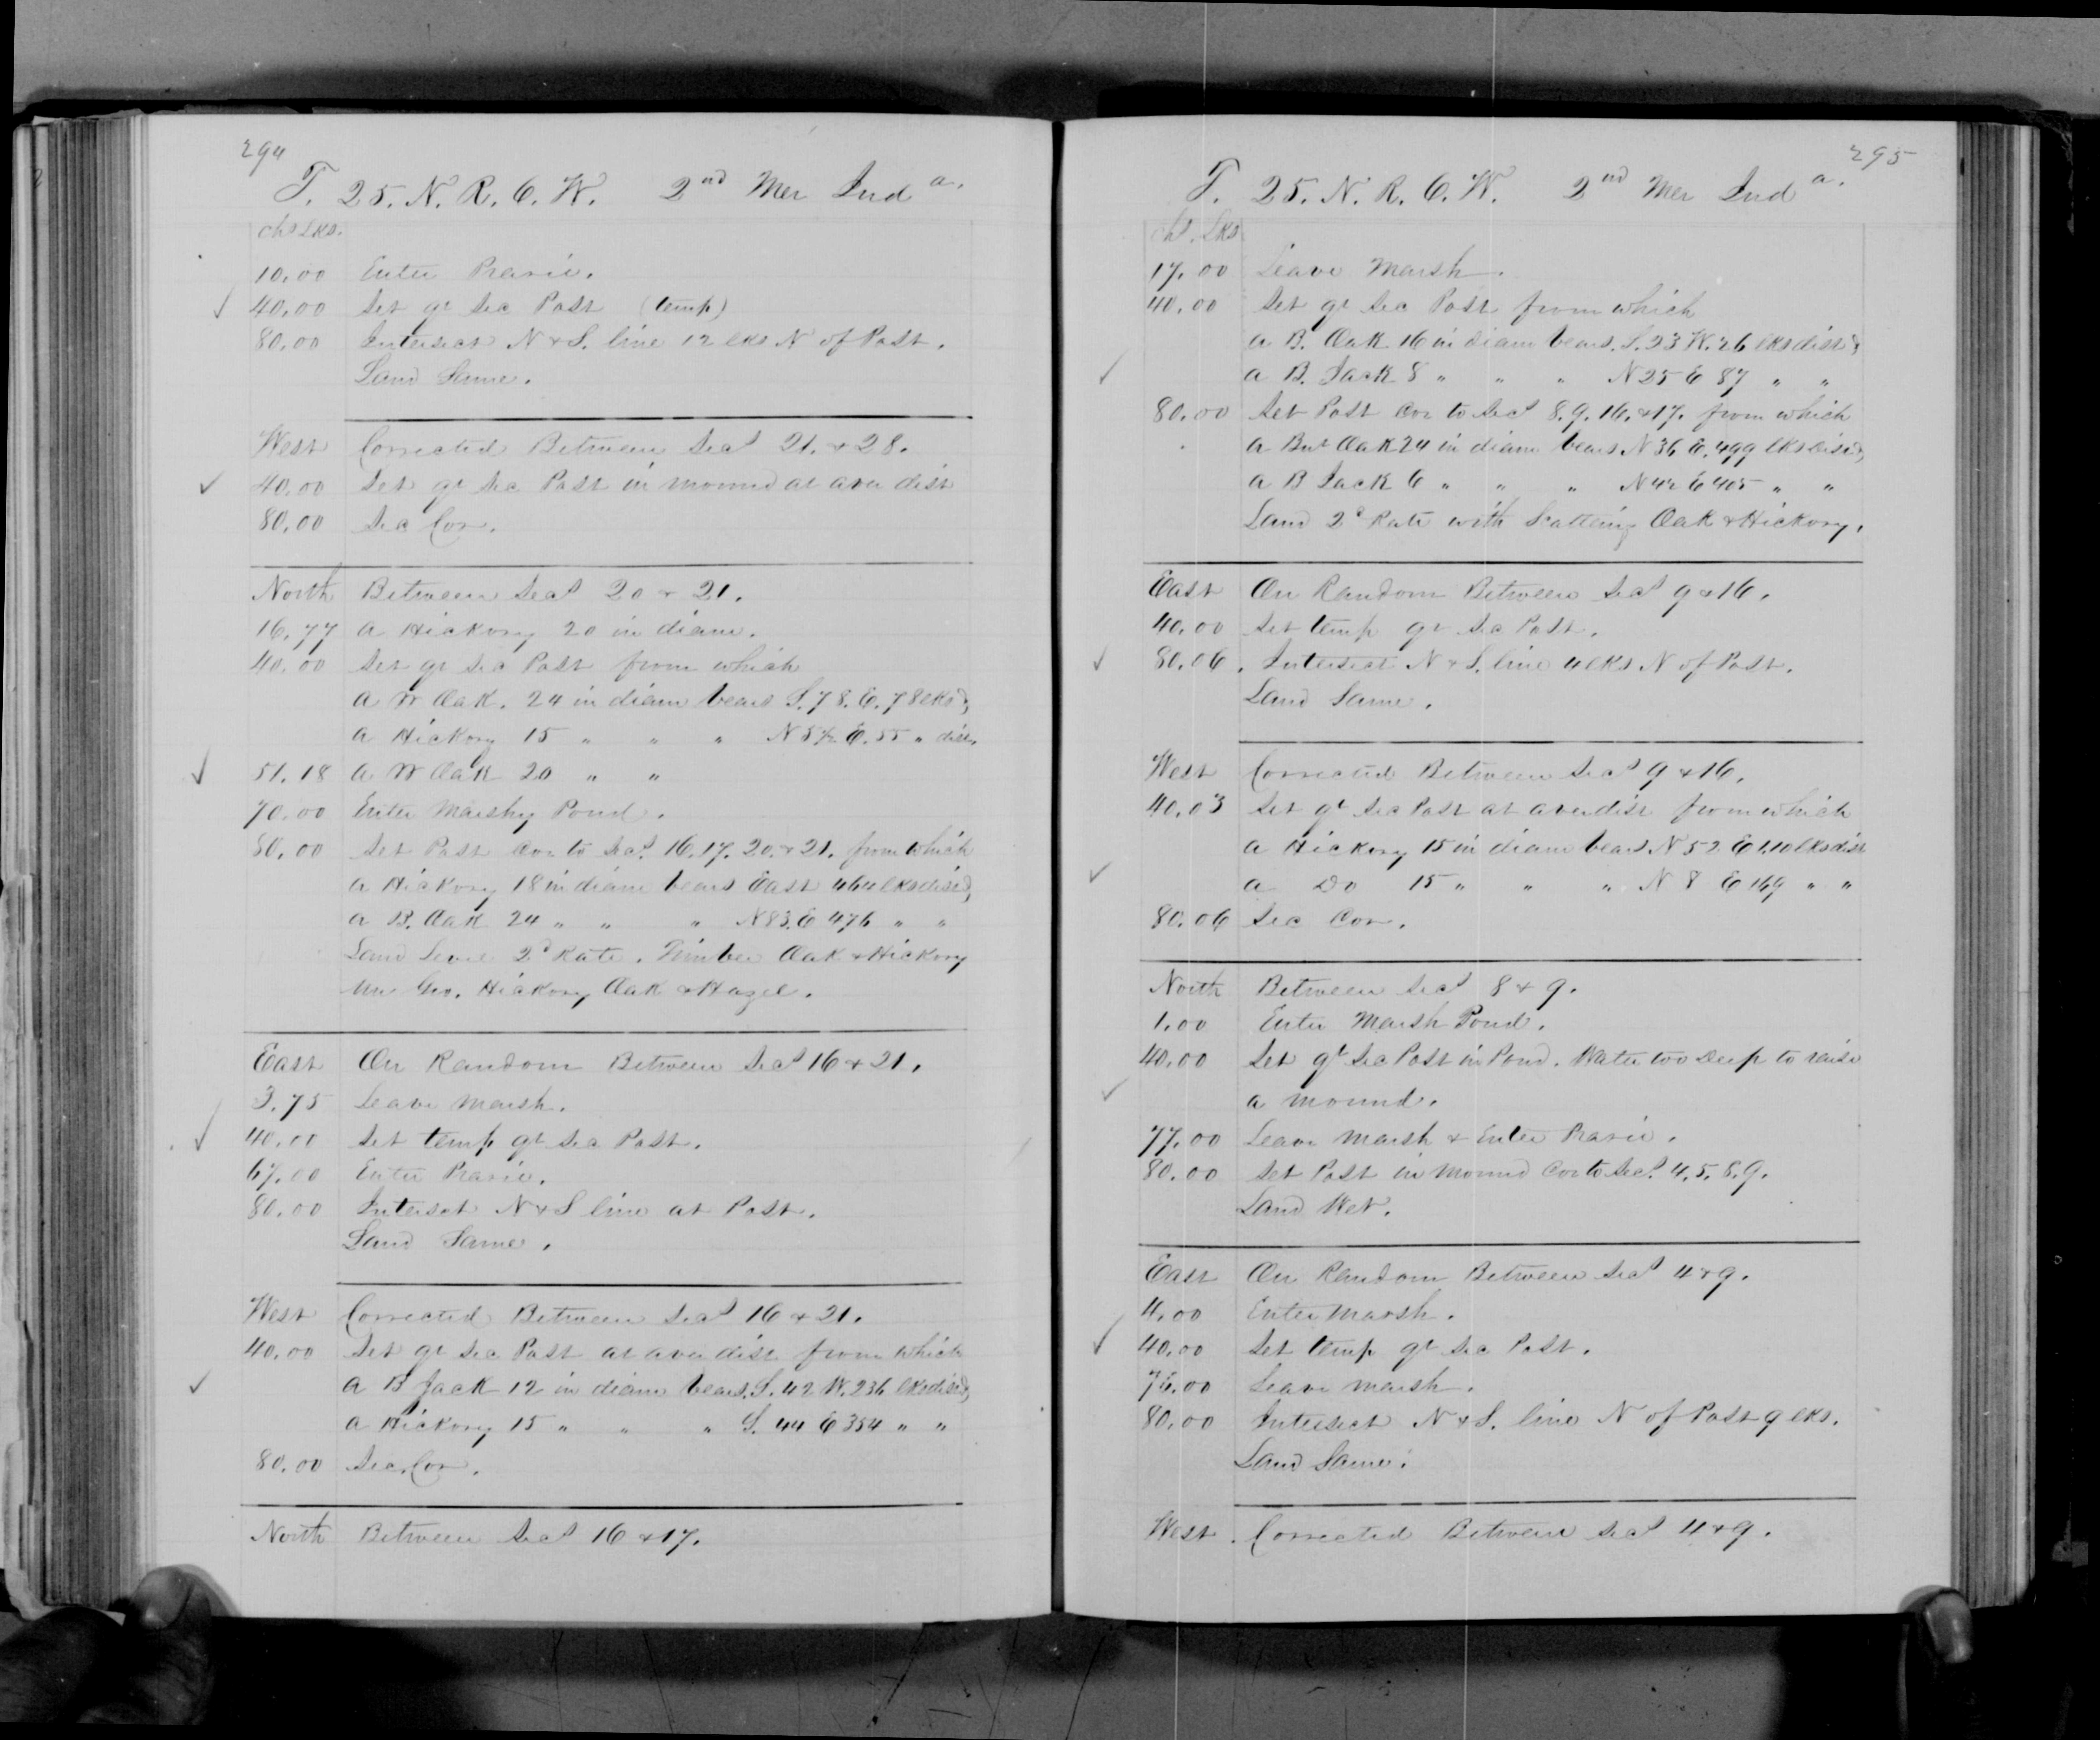 294
T. 25. N. R. 6. W. 2nd Mer Inda.
chs Lks.
10.00 Enter Prarie.
40.00 Set qr Sec Post (temp)
80.00 Intersect N & S. line 12 lks N of Post.
Land Same.
West Corrected Between Secs 21. & 28.
40.00 Set qr Sec Post in mound at aver dist
80.00 Sec Cor.
North Between Secs 20 & 21.
16.77 a Hickory 20 in diam.
40.00 Set qr Sec Post from which
a W Oak. 24 in diam bears S. 78. E. 78 lks &
a Hickory 15 " " " N 57 E. 55 " dist.
51.18 a W Oak 20 " "
70.00 Enter Marshy Pond.
80.00 Set Post Cor to Secs 16. 17. 20. & 21. from which
a Hickory 18 in diam bears East 464 lks dist &
a B. Oak 24 " " " N 83. E 476 " "
Land Level 2d Rate. Timber Oak & Hickory
Un Gro. Hickory Oak & Hazel.
East On Random Between Secs 16 & 21.
3.75 Leave Marsh.
40.00 Set temp qr Sec Post.
67.00 Enter Prarie.
80.00 Intersct N & S line at Post.
Land Same.
West Corrected Between Secs 16 & 21.
40.00 Set qr Sec Post at aver dist from which
a B Jack 12 in diam bears. S. 42 W. 236 lks dist &
a Hickory 15 " " " S. 44 E 354 " "
80.00 Sec. Cor.
North Between Secs 16 & 17.
295
T. 25. N. R. 6. W. 2nd Mer Inda.
chs. Lks
17.00 Leave Marsh.
40.00 Set qr Sec Post from which
a B. Oak 16 in diam bears. S. 23 W. 26 lks dist &
a B. Jack 8 " " " N 25 E 87 " "
80.00 Set Post Cor to Secs 8. 9. 16. & 17. from which
a Bur Oak 24 in diam bears N 36 E. 499 lks dist &
a B Jack 6 " " " N 42 E 405 " "
Land 2d Rate with Scattering Oak & Hickory.
East On Random Between Secs 9 & 16.
40.00 Set temp qr Sec Post.
80.06. Intersect N & S. line 4 lks N of Post.
Land Same.
West Corrected Between Secs 9 & 16.
40.03 Set qr Sec Post at aver dist from which
a Hickory 15 in diam bears N 52 E 1.10 lks dist
a Do 15 " " " N 8 E 169 " "
80.06 Sec Cor.
North Between Secs 8 & 9.
1.00 Enter Marsh Pond.
40.00 Set qr Sec Post in Pond. Water too Deep to raise
a mound.
77.00 Leave Marsh & Enter Prarie.
80.00 Set Post in Mound Cor to Secs. 4. 5. 8. 9.
Land Wet.
East On Random Between Secs 4 & 9.
4.00 Enter Marsh.
40.00 Set temp qr Sec Post.
Leave Marsh.
80.00 Intersect N & S. line N of Post 9 lks.
Land Same.
West. Corrected Between Secs 4 & 9.